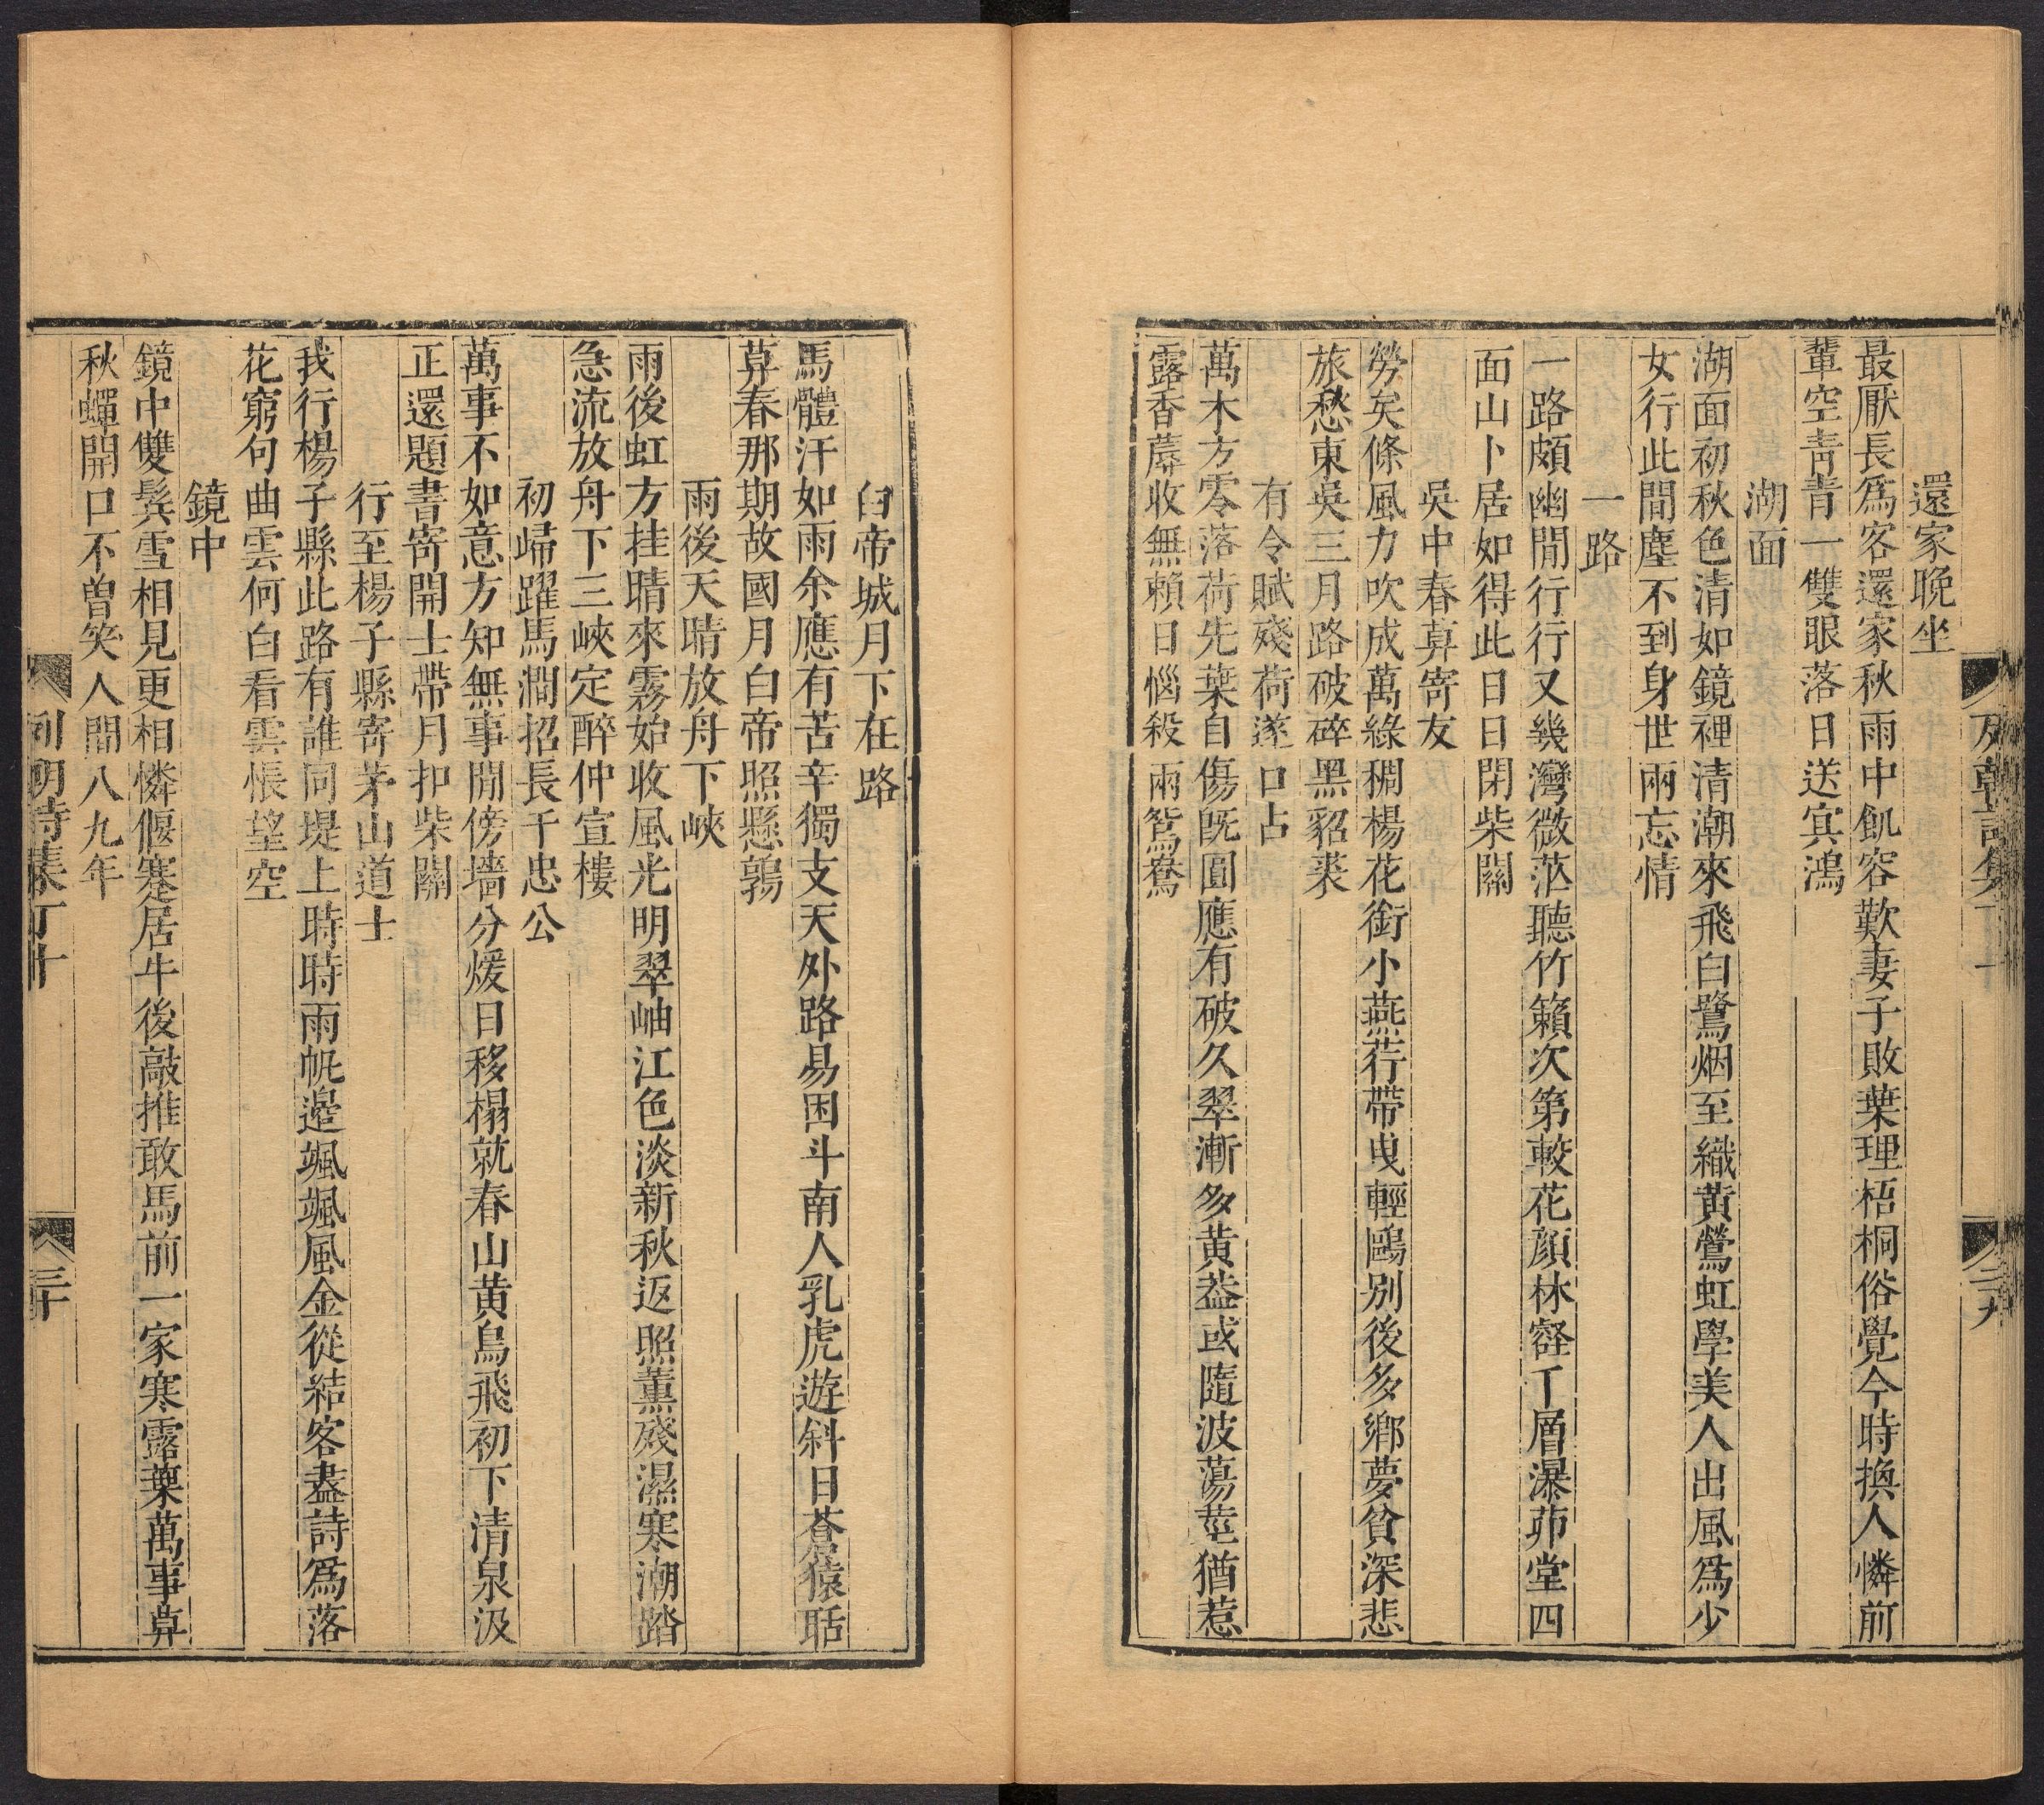 列朝詩集丁十
二十九
還家晚坐
最厭長爲客還家秋雨中飢容歎妻子敗葉理梧桐俗覺今時換人憐前
輩空靑青一雙眼落日送㝠鴻
湖面
湖面初秋色清如鏡裡清潮來飛白鷺烟至織黄鶯虹學美人出風爲少
女行此間塵不到身世兩忘情
一路
一路頗幽閒行行又幾灣微茫聽竹籟次第較花顔林壑丁層瀑茆堂四
面山卜居如得此日日閉柴關
吳中春莫寄友
勞矣條風力吹成萬綠稠楊花銜小燕荇帶曳輕鷗别後多鄉夢貧深悲
旅愁東吳三月路破碎黑貂裘
有令賦殘荷遂口占
萬木方零落荷先葉自傷旣圓應有破久翠漸多黄葢或隨波蕩莖猶惹
露香蓐收無賴日惱殺兩鴛鴦
白帝城月下在路
馬體汗如雨余應有苦辛獨支天外路易困斗南人乳虎遊斜日蒼猿聒
莫春那期故國月白帝照懸鶉
雨後天晴放舟下峽
雨後虹方挂晴來霧始收風光明翠岫江色淡新秋返照薫殘濕寒潮踏
急流放舟下三峽定醉仲宣樓
初歸躍馬澗招長干忠公
萬事不如意方知無事閒傍墻分煖日移榻就春山黄鳥飛初下清泉汲
正還題書寄開士帶月扣柴關
行至楊子縣寄茅山道士
我行楊子縣此路有誰同堤上時時雨帆邉颯颯風金從結客盡詩爲落
花窮句曲雲何白看雲悵望空
鏡中
鏡中雙鬂雪相見更相憐偃蹇居牛後敲推敢馬前一家寒露葉萬事莫
秋蟬開口不曾笑人間八九年
列朝詩集丁十
三十